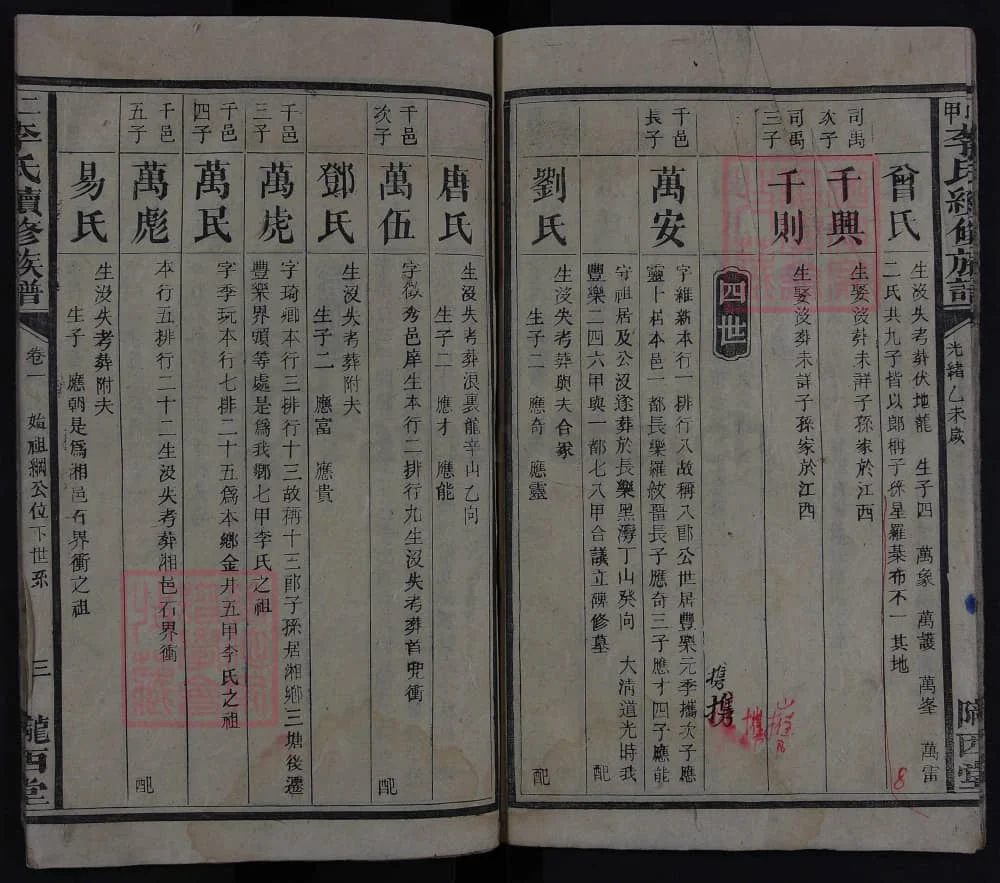 甲李氏續修族譜
光緒乙未歲
隴西堂
曾氏
生沒失考葬伏地龍 生子四 萬象 萬護 萬峯 萬雷
二氏共九子皆以郎稱子孫星羅棊布不一其地
司禹次子
千興
生娶沒葬未詳子孫家於江西
司禹三子
千則
生娶沒葬未詳子孫家於江西
四世
千邑長子
萬安
字維新本行一排行八故稱八郎公世居豐樂元季攜次子應
靈卜居本邑一都長樂羅紋嘼長子應奇三子應才四子應能
守祖居及公沒遂葬於長樂黑灣丁山癸向 大清道光時我
豐樂二四六甲與一都七八甲合議立碑修墓 配
劉氏
生沒失考葬與夫合冢
生子二 應奇 應靈 配
攜
携
攜
8
唐氏
生沒失考葬浪裏龍辛山乙向
生子二 應才 應能 配
千邑次子
萬伍
字徵秀邑庠生本行二排行九生沒失考葬首兜衝
配
鄧氏
生沒失考葬附夫
生子二 應富 應貴
千邑三子
萬虎
字琦卿本行三排行十三故稱十三郎子孫居湘鄉三塘後遷
豐樂界頭等處是爲我鄉七甲李氏之祖
千邑四子
萬民
字季玩本行七排二十五爲本鄉金井五甲李氏之祖
千邑五子
萬彪
本行五排行二十二生沒失考葬湘邑石界衝
配
易氏
生沒失考葬附夫
生子 應朝是爲湘邑石界衝之祖
二李氏續修族譜
卷一
始祖綱公位下世系
三
隴西堂